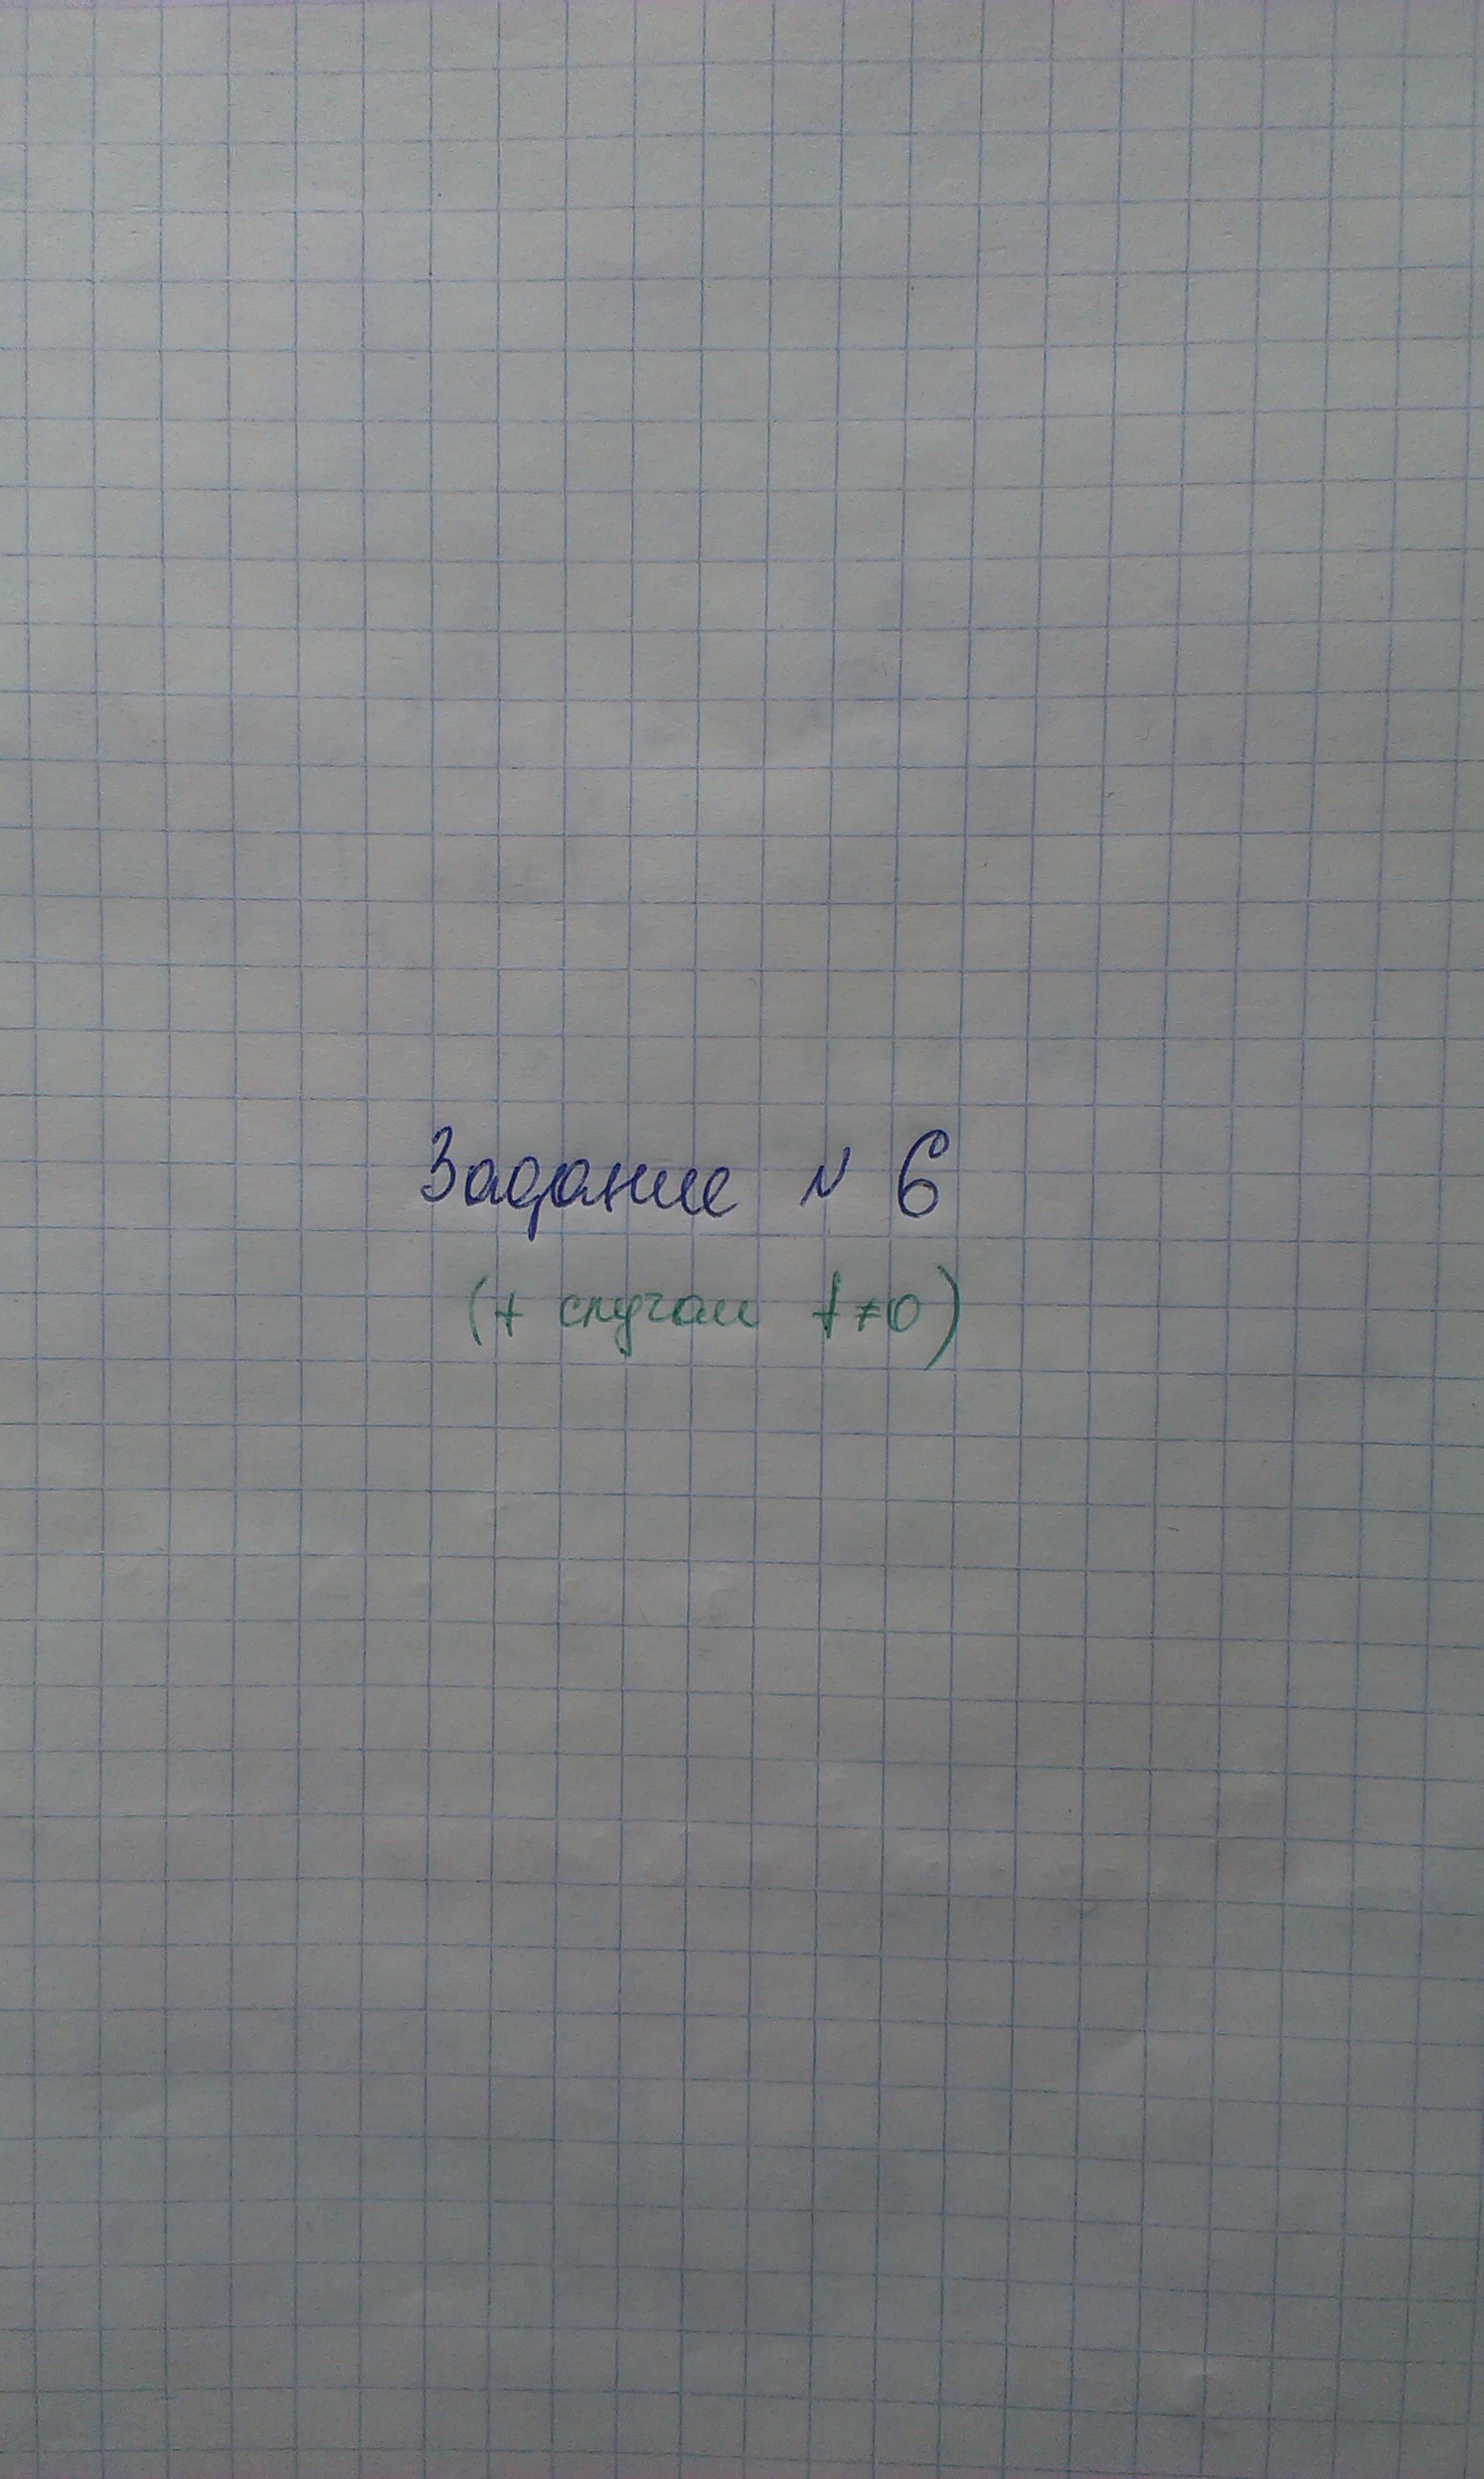 Задание N 6
(+ случаи f≠0)